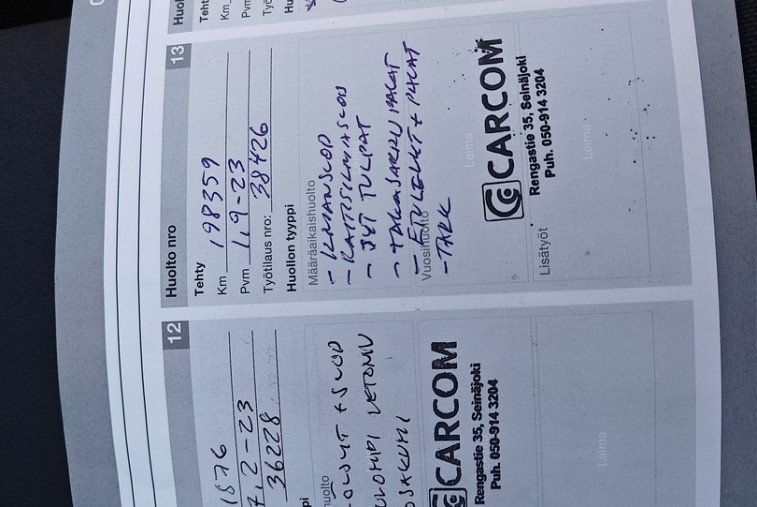 Huolto nro 13
Tehty
Km 198359
Pvm 1.9-23
Työtilaus nro: 38426
Huollon tyyppi
Määräaikaishuolto
- ILMANSUOD
- RAITISILMASUOD
- SYT TULPAT
- TAKAJARRUPALAT
- ETULEVYT + PALAT
Vuosihuolto
- TARK
Leima
CARCOM
Rengastie 35, Seinäjoki
Puh. 050-914 3204
Lisätyöt
Leima
12
1876
7.2-23
36228
huolto
+ SUOD
VETONIV
CARCOM
Rengastie 35, Seinäjoki
Puh. 050-914 3204
Leima
Huol
Teht
Km
Pvm
Työ
Hu